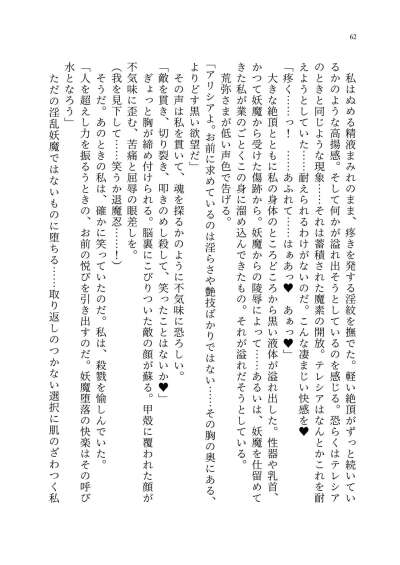 62
私はぬめる精液まみれのまま、疼きを発する淫紋を撫でた。軽い絶頂がずっと続いてい
るかのような高揚感。そして何かが溢れ出そうとしているのを感じる。恐らくはテレシア
のときと同じような現象……それは蓄積された魔素の開放。テレシアはなんとかこれを耐
えようとしていた……耐えられるわけがないのだ。こんな凄まじい快感を♥
「疼く……っ！　……あふれて……はぁあっ♥　あぁっ♥」
大きな絶頂とともに私の身体のところどころから黒い液体が溢れ出した。性器や乳首、
かつて妖魔から受けた傷跡から。妖魔からの陵辱によって……あるいは、妖魔を仕留めて
きた私が業のごとくこの身に溜め込んできたもの。それが溢れだそうとしている。
荒弥さまが低い声色で告げる。
「アリシアよ。お前に求めているのは淫らさや艶技ばかりではない……その胸の奥にある、
よりどす黒い欲望だ」
その声は私を貫いて、魂を探るかのように不気味に恐ろしい。
「敵を貫き、切り裂き、叩きのめし殺して、笑ったことはないか♥
ぎょっと胸が締め付けられる。脳裏にこびりついた敵の顔が蘇る。甲殻に覆われた顔が
不気味に歪む、苦痛と屈辱の眼差しを。
（我を見下して……笑うか退魔忍……！）
そうだ。あのときの私は、確かに笑っていたのだ。私は、殺戮を愉しんでいた。
「人を超えし力を振るうときの、お前の悦びを引き出すのだ。妖魔堕落の快楽はその呼び
水となろう」
ただの淫乱妖魔ではないものに堕ちる……取り返しのつかない選択に肌のざわつく私